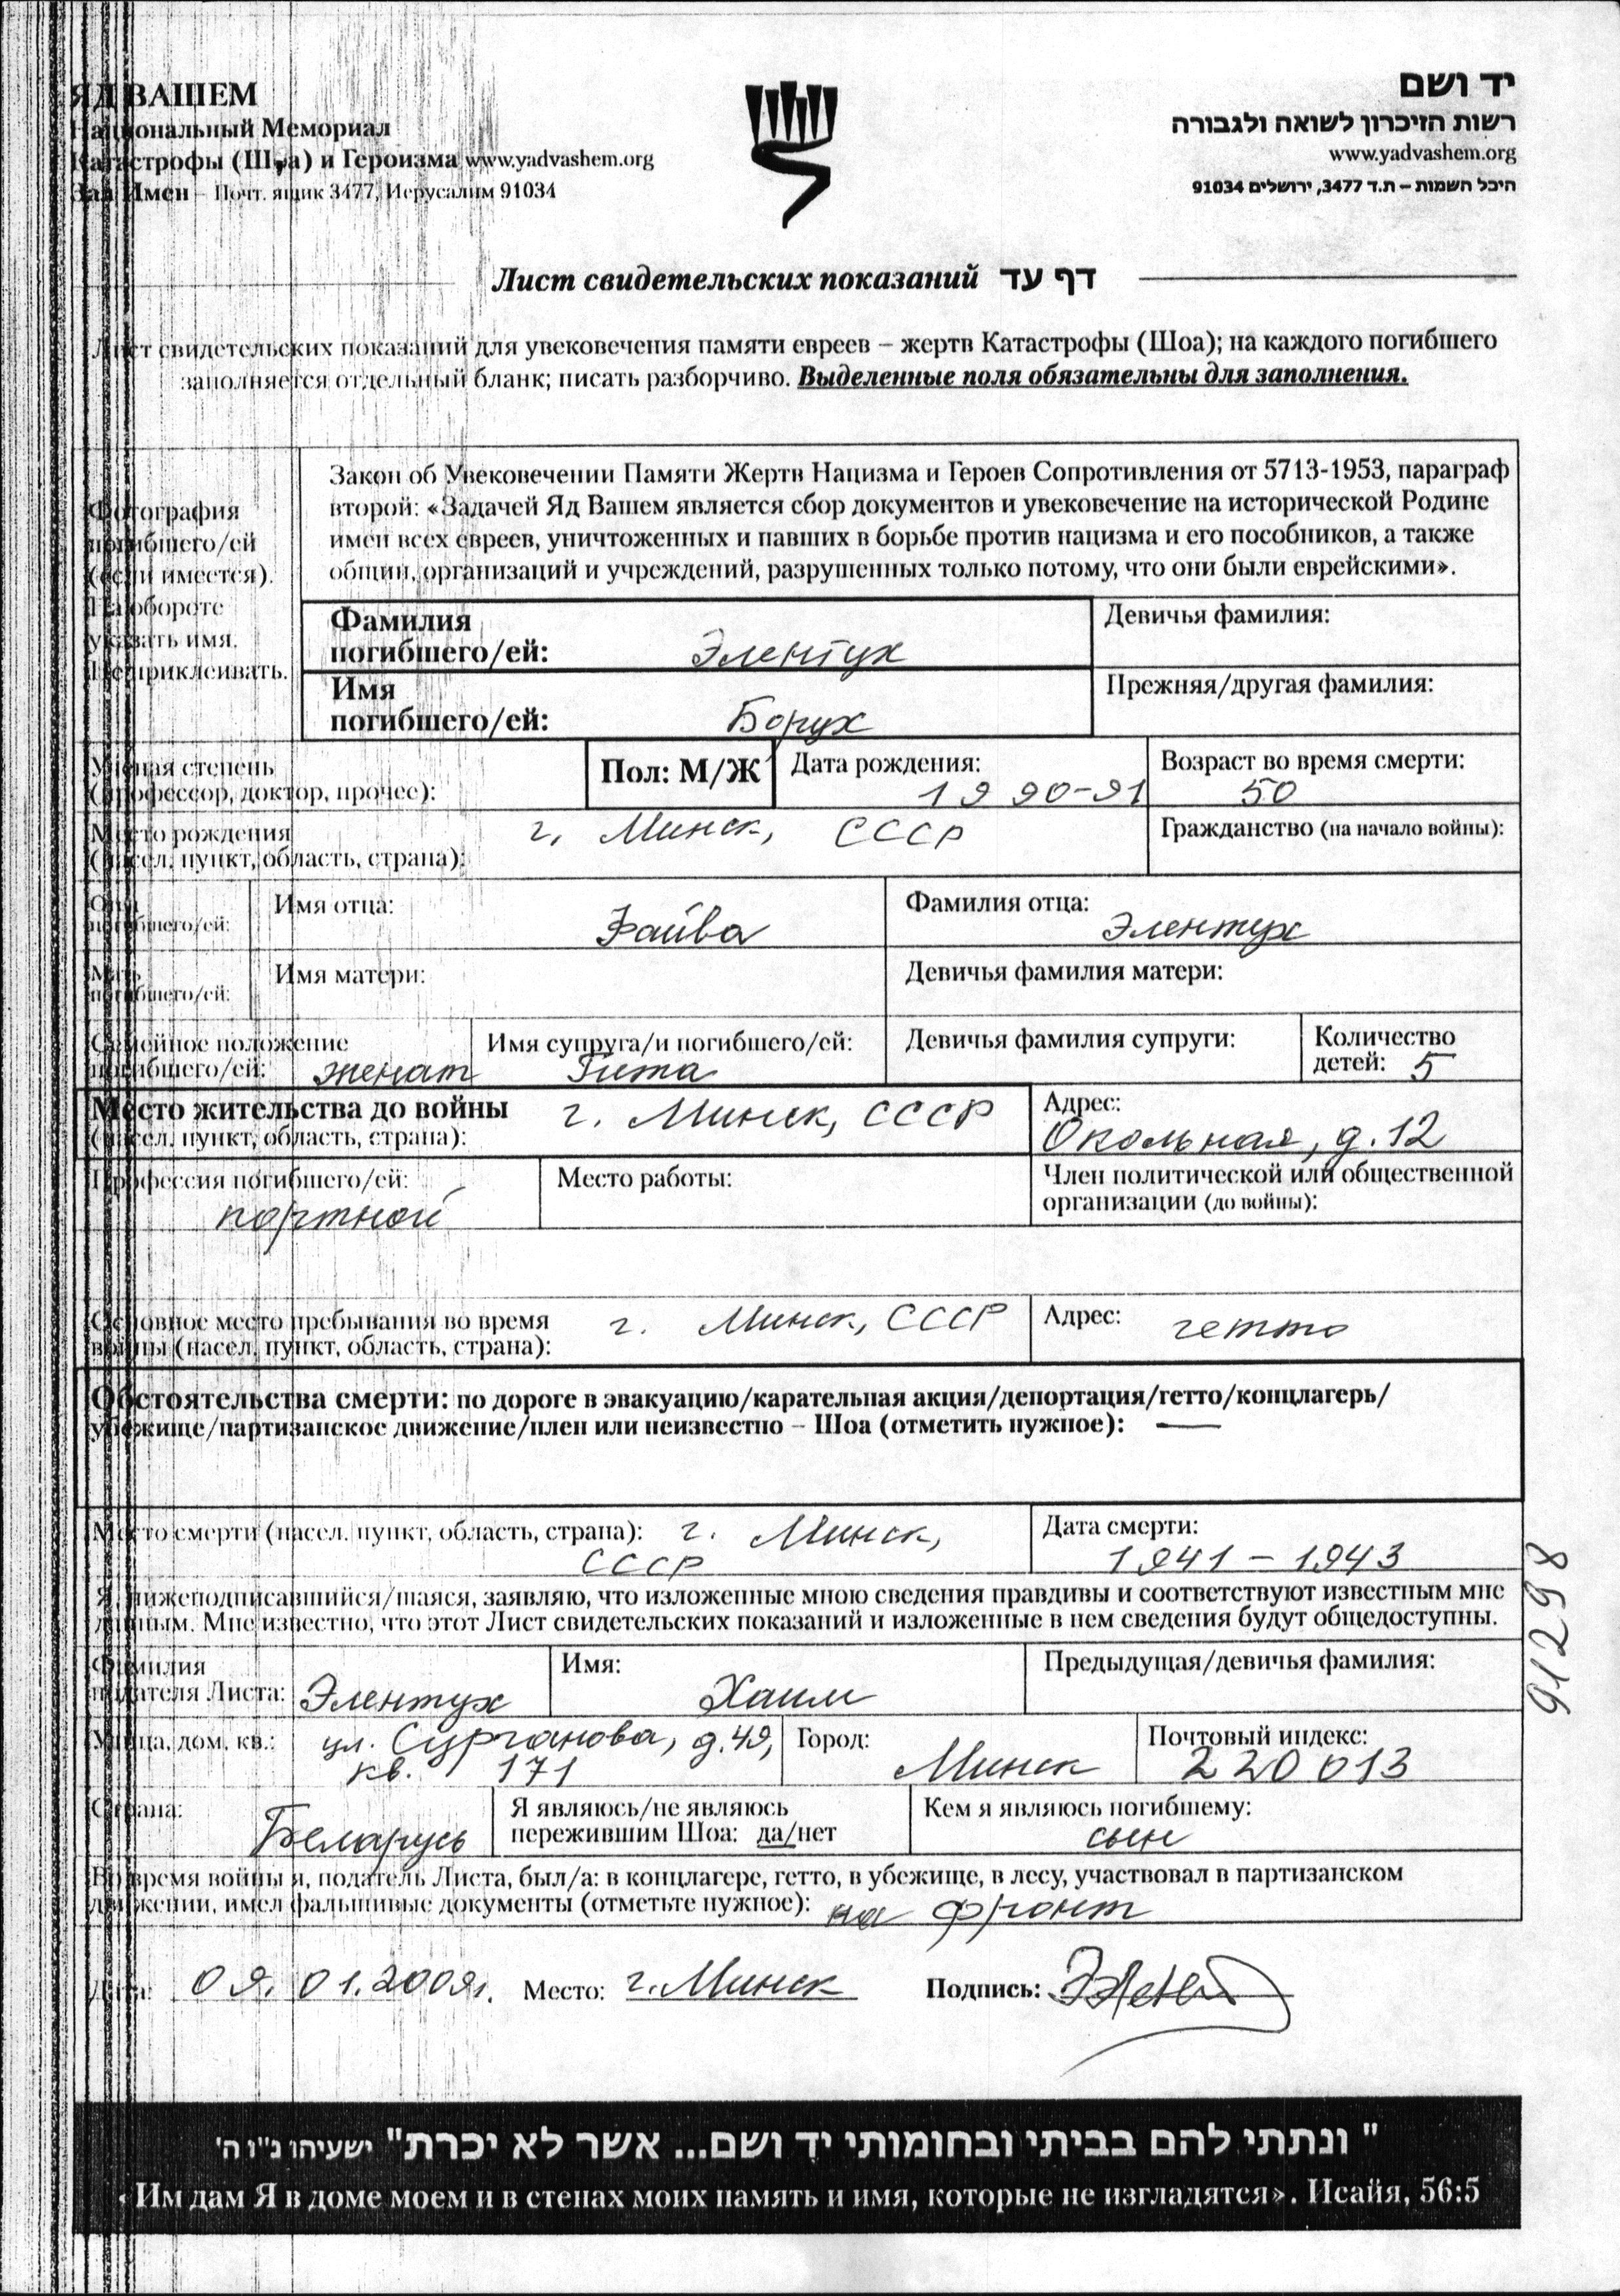 ЯД ВАШЕМ
Национальный Мемориал
Катастрофы (Шоа) и Героизма www.yadvashem.org
Зал Имен – Почт. ящик 3477, Иерусалим 91034
יד ושם
רשות הזיכרון לשואה ולגבורה
www.yadvashem.org
היכל השמות – ת.ד 3477, ירושלים 91034
Лист свидетельских показаний דף עד
Лист свидетельских показаний для увековечения памяти евреев – жертв Катастрофы (Шоа); на каждого погибшего
заполняется отдельный бланк; писать разборчиво. Выделенные поля обязательны для заполнения.
Фотография
погибшего/ей
(если имеется).
На обороте
указать имя.
Не приклеивать.
Закон об Увековечении Памяти Жертв Нацизма и Героев Сопротивления от 5713-1953, параграф
второй: «Задачей Яд Вашем является сбор документов и увековечение на исторической Родине
имен всех евреев, уничтоженных и павших в борьбе против нацизма и его пособников, а также
общин, организаций и учреждений, разрушенных только потому, что они были еврейскими».
Фамилия
погибшего/ей: Элентух
Девичья фамилия:
Имя
погибшего/ей: Борух
Прежняя/другая фамилия:
Ученая степень
(профессор, доктор, прочее):
Пол: М/Ж
Дата рождения:
1990-91
Возраст во время смерти:
50
Место рождения
(насел. пункт, область, страна): г. Минск, СССР
Гражданство (на начало войны):
Отец
погибшего/ей:
Имя отца: Файва
Фамилия отца: Элентух
Мать
погибшего/ей:
Имя матери:
Девичья фамилия матери:
Семейное положение
погибшего/ей: женат
Имя супруга/и погибшего/ей:
Гита
Девичья фамилия супруги:
Количество
детей: 5
Место жительства до войны
(насел. пункт, область, страна): г. Минск, СССР
Адрес:
Окольная, д. 12
Профессия погибшего/ей:
портной
Место работы:
Член политической или общественной
организации (до войны):
Основное место пребывания во время
войны (насел. пункт, область, страна): г. Минск, СССР
Адрес: гетто
Обстоятельства смерти: по дороге в эвакуацию/карательная акция/депортация/гетто/концлагерь/
убежище/партизанское движение/плен или неизвестно – Шоа (отметить нужное): —
Место смерти (насел. пункт, область, страна): г. Минск,
СССР
Дата смерти:
1941 – 1943
Я, нижеподписавшийся/шаяся, заявляю, что изложенные мною сведения правдивы и соответствуют известным мне
данным. Мне известно, что этот Лист свидетельских показаний и изложенные в нем сведения будут общедоступны.
Фамилия
подателя Листа: Элентух
Имя: Хаим
Предыдущая/девичья фамилия:
Улица, дом, кв.: ул. Сурганова, д. 49,
кв. 171
Город: Минск
Почтовый индекс:
220013
Страна: Беларусь
Я являюсь/не являюсь
пережившим Шоа: да/нет
Кем я являюсь погибшему:
сын
Во время войны я, податель Листа, был/а: в концлагере, гетто, в убежище, в лесу, участвовал в партизанском
движении, имел фальшивые документы (отметьте нужное): на фронт
Дата: 09.01.2009г. Место: г. Минск Подпись:
912298
" ונתתי להם בביתי ובחומותי יד ושם... אשר לא יכרת" ישעיהו נ"ו ה'
«Им дам Я в доме моем и в стенах моих память и имя, которые не изгладятся». Исайя, 56:5